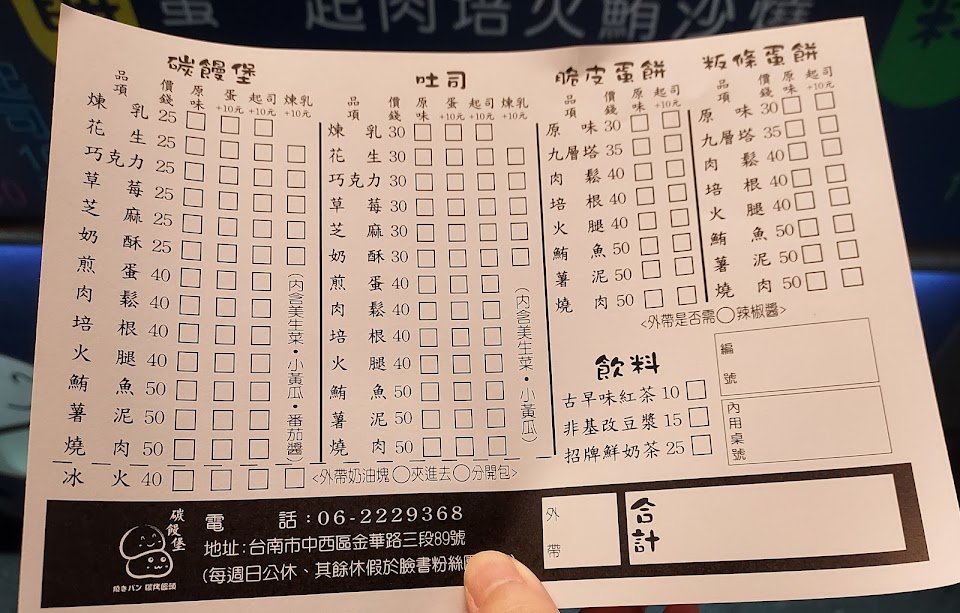 蛋 起肉培火鮪沙燒
碳饅堡
品項 價錢 原味 蛋+10元 起司+10元 煉乳+10元
煉乳 25
花生 25
巧克力 25
草莓 25
芝麻 25
奶酥 25
煎蛋 40
肉鬆 40
培根 40
火腿 40
鮪魚 50
薯泥 50
燒肉 50
冰火 40
(內含美生菜•小黃瓜•番茄醬)
吐司
品項 價錢 原味 蛋+10元 起司+10元 煉乳+10元
煉乳 30
花生 30
巧克力 30
草莓 30
芝麻 30
奶酥 30
煎蛋 40
肉鬆 40
培根 40
火腿 40
鮪魚 50
薯泥 50
燒肉 50
(內含美生菜•小黃瓜)
<外帶奶油塊○夾進去○分開包>
脆皮蛋餅
品項 價錢 原味 起司+10元
原味 30
九層塔 35
肉鬆 40
培根 40
火腿 40
鮪魚 50
薯泥 50
燒肉 50
粄條蛋餅
品項 價錢 原味 起司+10元
原味 30
九層塔 35
肉鬆 40
培根 40
火腿 40
鮪魚 50
薯泥 50
燒肉 50
<外帶是否需○辣椒醬>
飲料
古早味紅茶 10
非基改豆漿 15
招牌鮮奶茶 25
編號
內用桌號
碳饅堡
燒きパン 碳烤饅頭
電話:06-2229368
地址:台南市中西區金華路三段89號
(每週日公休、其餘休假於臉書粉絲
外帶
合計